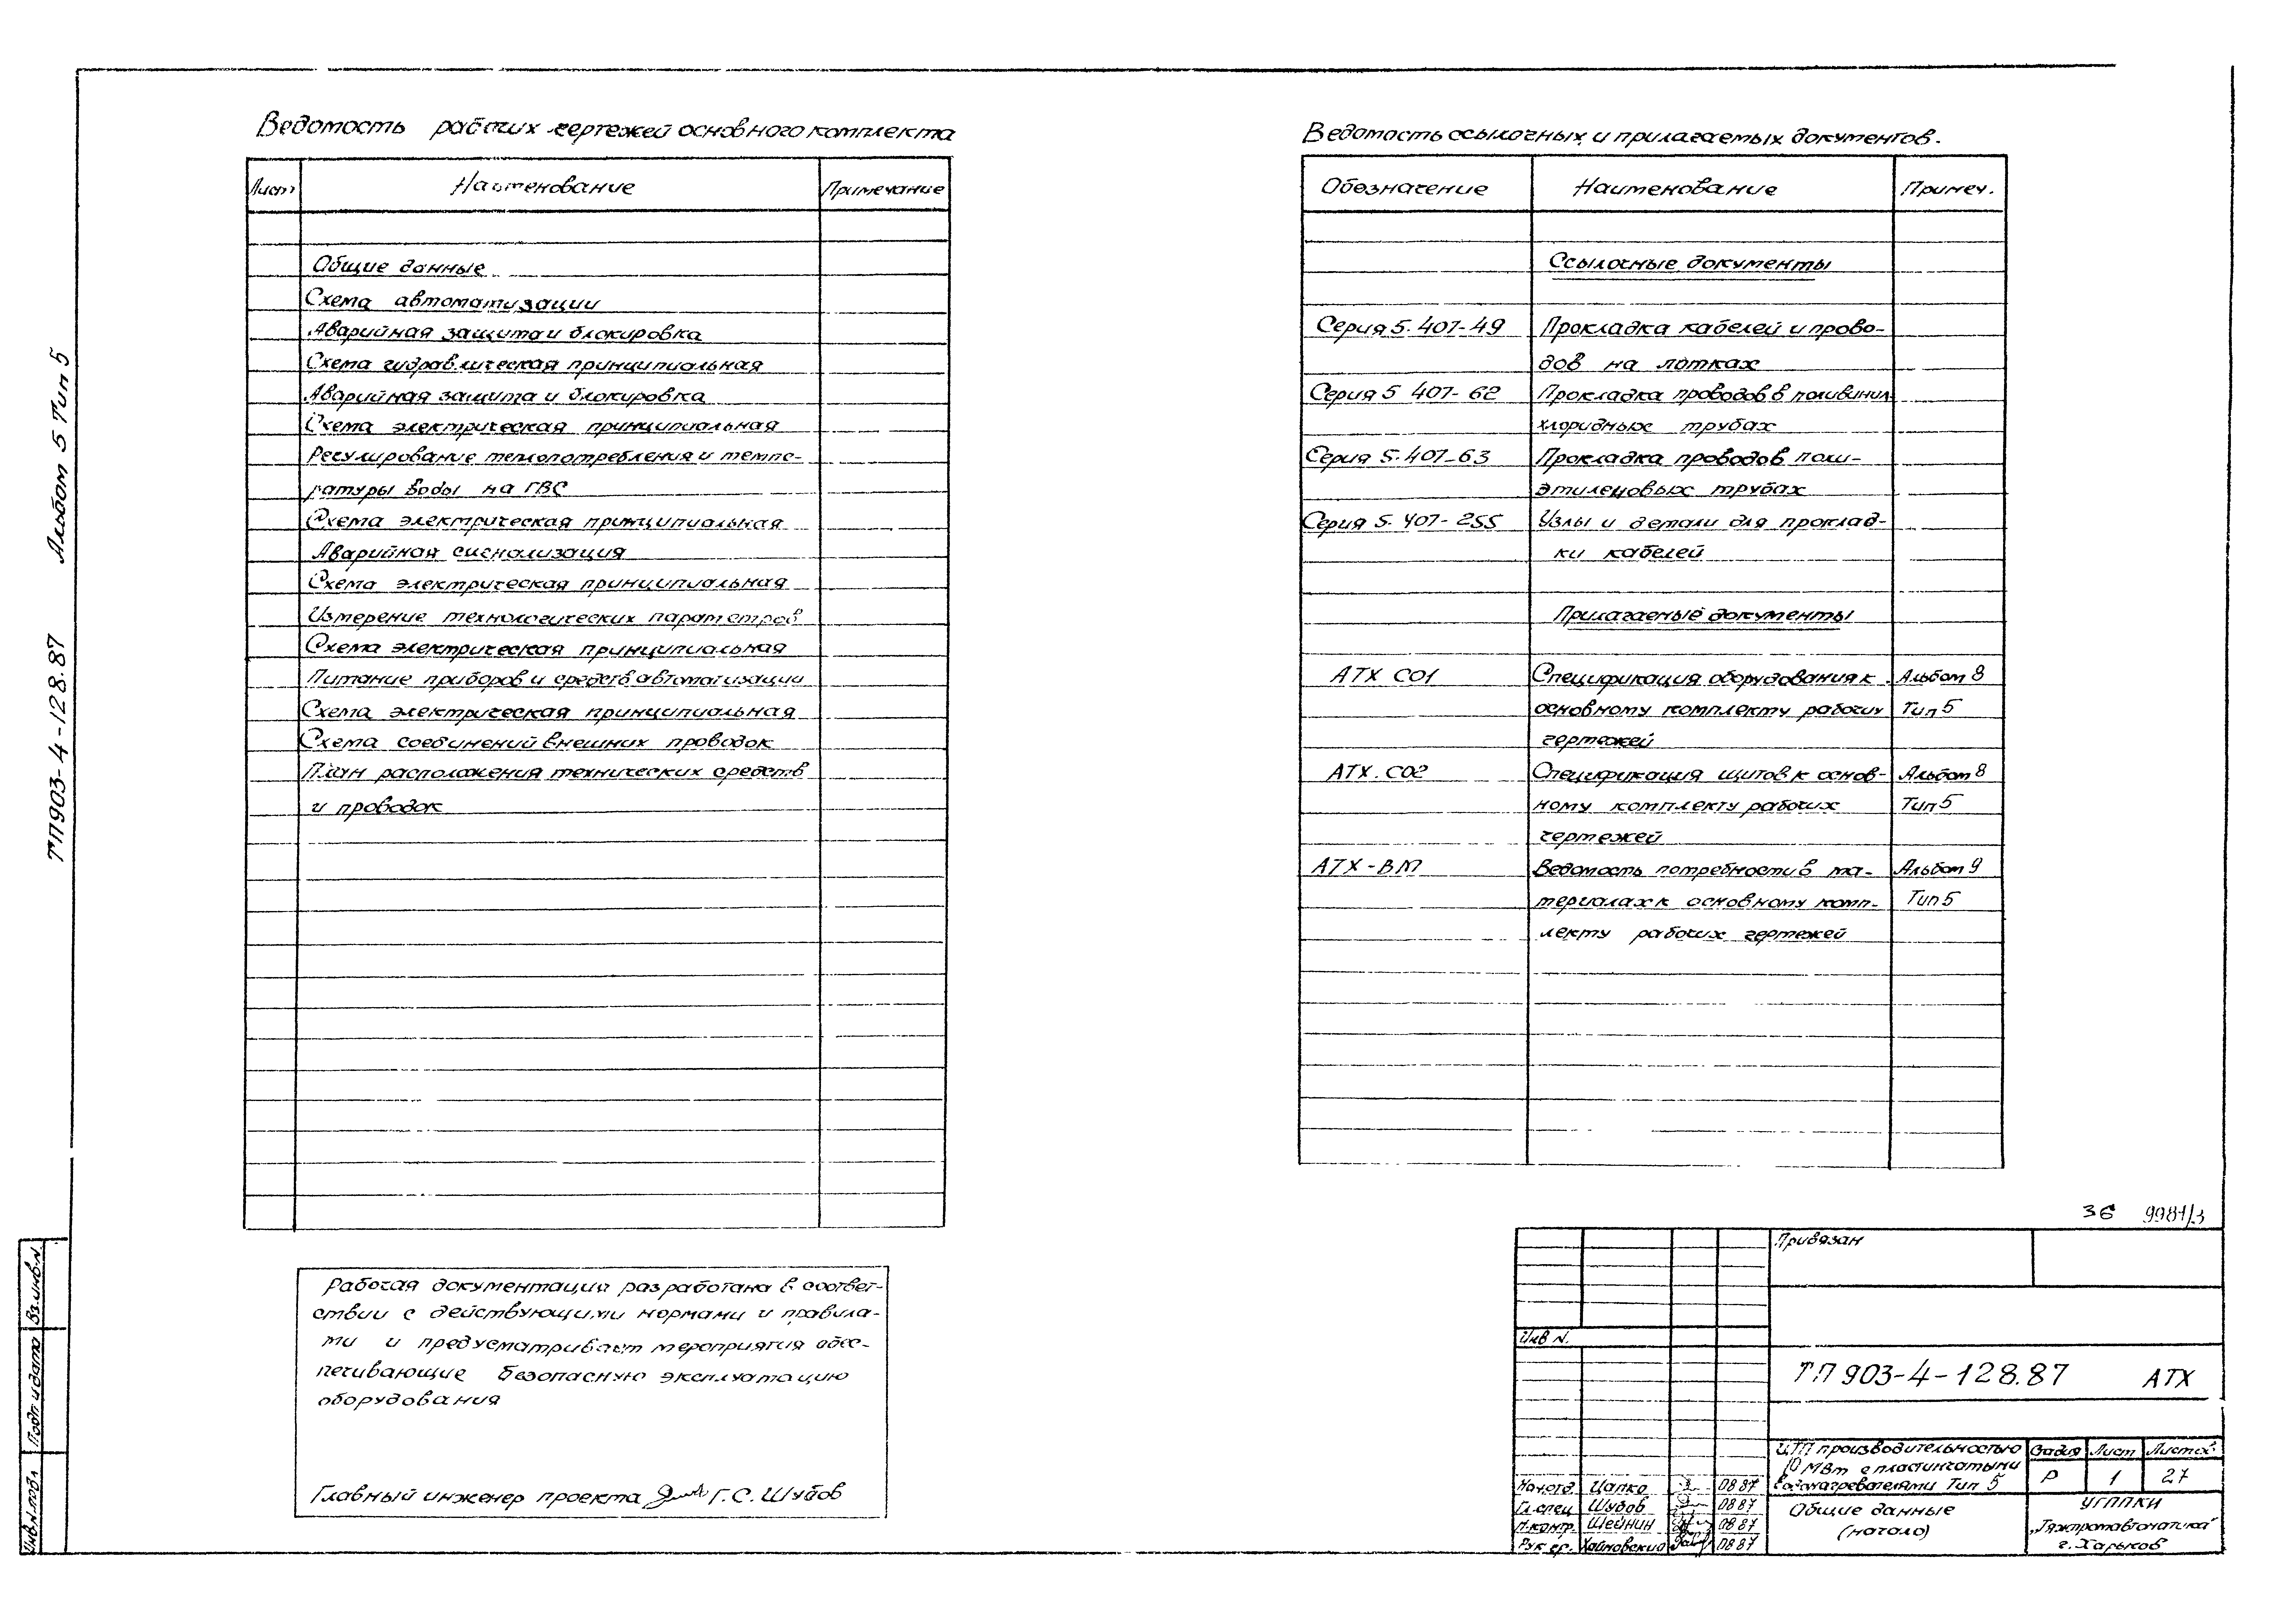 Альбом 5 Тип 5
ТП903-4-128.87
Ведомость рабочих чертежей основного комплекта
Лист Наименование Примечание
Общие данные
Схема автоматизации
Аварийная защита и блокировка
Схема гидравлическая принципиальная
Аварийная защита и блокировка
Схема электрическая принципиальная
Регулирование теплопотребления и темпе-
ратуры воды на ГВС
Схема электрическая принципиальная
Аварийная сигнализация
Схема электрическая принципиальная
Измерение технологических параметров
Схема электрическая принципиальная
Питание приборов и средств автоматизации
Схема электрическая принципиальная
Схема соединений внешних проводок
План расположения технических средств
и проводок
Рабочая документация разработана в соответ-
ствии с действующими нормами и правила-
ми и предусматривает мероприятия обес-
печивающие безопасную эксплуатацию
оборудования
Главный инженер проекта Г.С. Шубов
Ведомость ссылочных и прилагаемых документов.
Обозначение Наименование Примеч.
Ссылочные документы
Серия 5.407-49 Прокладка кабелей и прово-
дов на лотках
Серия 5 407-62 Прокладка проводов в поливинил
хлоридных трубах
Серия 5.407-63 Прокладка проводов поли-
этиленовых трубах
Серия 5.407-255 Узлы и детали для проклад-
ки кабелей
Прилагаемые документы
АТХ СО1 Спецификация оборудования к Альбом 8
основному комплекту рабочих Тип 5
чертежей
АТХ.СО2 Спецификация щитов к основ- Альбом 8
ному комплекту рабочих Тип 5
чертежей
АТХ-ВМ Ведомость потребности в ма- Альбом 9
териалах к основному комп- Тип 5
лекту рабочих чертежей
36 9981/3
Привязан
Инв N.
ТП 903-4-128.87 АТХ
ЦТП производительностью
10 МВт с пластинчатыми
водонагревателями Тип 5
Стадия Лист Листов
Р 1 27
Нач.отд. Цапко 08 87
Гл.спец Шубов 08 87
Н.контр. Шейнин 08 87
Рук гр. Хайновский 08 87
Общие данные
(начало)
УГППКИ
„Тяжпромавтоматика"
г. Харьков
Вз.инв.N.
Подп. и дата
Инв.N.подл